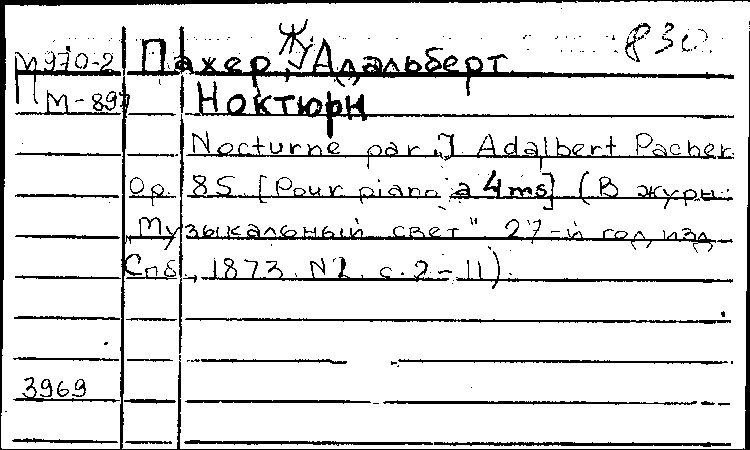 830.
М970-2 Пахер, Ж. Адальберт
П М-897 Ноктюрн
Nocturne par J Adalbert Pacher
Op. 85 [Pour piano a 4 ms] (В журн:
„Музыкальный свет" 27-й год изд
Спб, 1873. N1. с. 2-11).
3969